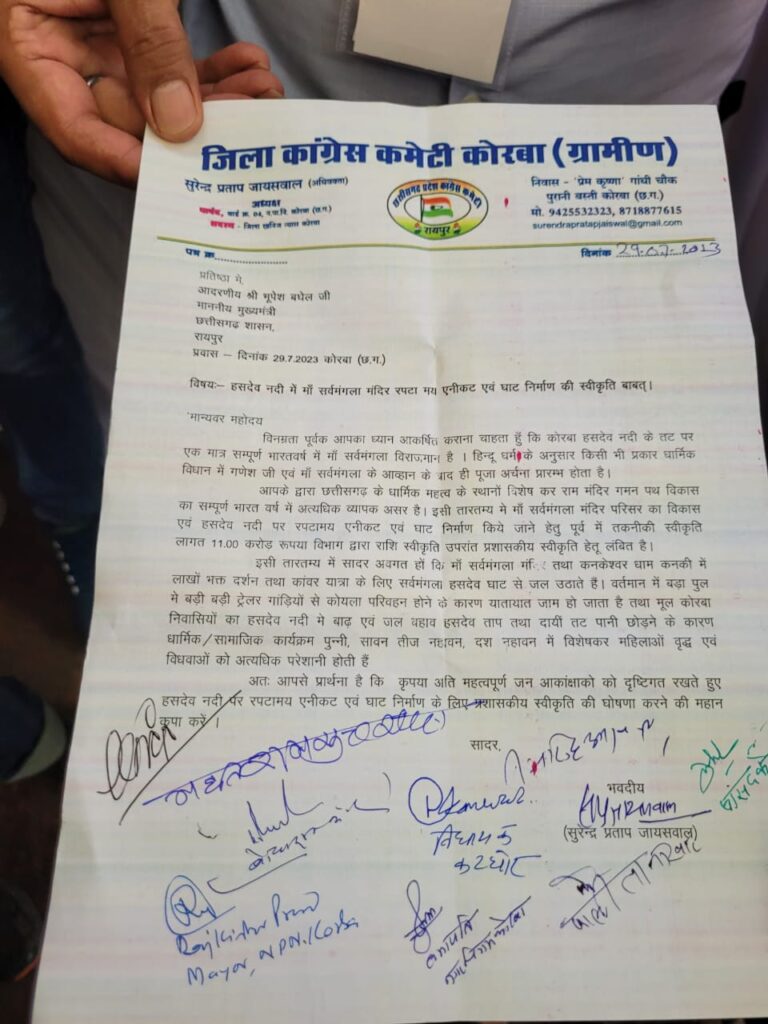 जिला कांग्रेस कमेटी कोरबा (ग्रामीण)
सुरेन्द्र प्रताप जायसवाल (अधिवक्ता)
अध्यक्ष
पार्षद, वार्ड क्र. 04, न.पा.नि. कोरबा (छ.ग.)
सदस्य - जिला खनिज न्यास कोरबा
छत्तीसगढ़ प्रदेश कांग्रेस कमेटी
रायपुर
निवास - 'प्रेम कृष्णा' गांधी चौक
पुरानी बस्ती कोरबा (छ.ग.)
मो. 9425532323, 8718877615
surendrapratapjaiswal@gmail.com
पत्र क्र...................
दिनांक 29.07.2023
प्रतिष्ठा मे,
आदरणीय श्री भूपेश बघेल जी
माननीय मुख्यमंत्री
छत्तीसगढ़ शासन,
रायपुर
प्रवास – दिनांक 29.7.2023 कोरबा (छ.ग.)
विषयः– हसदेव नदी में माँ सर्वमंगला मंदिर रपटा मय एनीकट एवं घाट निर्माण की स्वीकृति बाबत्।
मान्यवर महोदय
विनम्रता पूर्वक आपका ध्यान आकर्षित कराना चाहता हुँ कि कोरबा हसदेव नदी के तट पर
एक मात्र सम्पूर्ण भारतवर्ष में माँ सर्वमंगला विराजमान है । हिन्दू धर्म के अनुसार किसी भी प्रकार धार्मिक
विधान में गणेश जी एवं माँ सर्वमंगला के आव्हान के बाद ही पूजा अर्चना प्रारम्भ होता है।
आपके द्वारा छत्तीसगढ़ के धार्मिक महत्व के स्थानों विशेष कर राम मंदिर गमन पथ विकास
का सम्पूर्ण भारत वर्ष में अत्यधिक व्यापक असर है। इसी तारतम्य मे माँ सर्वमंगला मंदिर परिसर का विकास
एवं हसदेव नदी पर रपटामय एनीकट एवं घाट निर्माण किये जाने हेतु पूर्व में तकनीकी स्वीकृति
लागत 11.00 करोड़ रूपया विभाग द्वारा राशि स्वीकृति उपरांत प्रशासकीय स्वीकृति हेतू लंबित है।
इसी तारतम्य में सादर अवगत हों कि माँ सर्वमंगला तथा कनकेश्वर धाम कनकी में
लाखों भक्त दर्शन तथा कांवर यात्रा के लिए सर्वमंगला हसदेव घाट से जल उठाते हैं। वर्तमान में बड़ा पुल
मे बड़ी बड़ी ट्रेलर गाड़ियों से कोयला परिवहन होने के कारण यातायात जाम हो जाता है तथा मूल कोरबा
निवासियों का हसदेव नदी मे बाढ़ एवं जल बहाव हसदेव ताप तथा दायीं तट पानी छोड़ने के कारण
धार्मिक/सामाजिक कार्यक्रम पुन्नी, सावन तीज नहावन, दश नहावन में विशेषकर महिलाओं वृद्ध एवं
विधवाओं को अत्यधिक परेशानी होती हैं
अतः आपसे प्रार्थना है कि कृपया अति महत्वपूर्ण जन आकांक्षाको को दृष्टिगत रखते हुए
हसदेव नदी पर रपटामय एनीकट एवं घाट निर्माण के लिए प्रशासकीय स्वीकृति की घोषणा करने की महान
कृपा करें ।
सादर,
भवदीय
(सुरेन्द्र प्रताप जायसवाल)
विधायक
कटघोरा
Mayor, NPN. Korba
सभापति